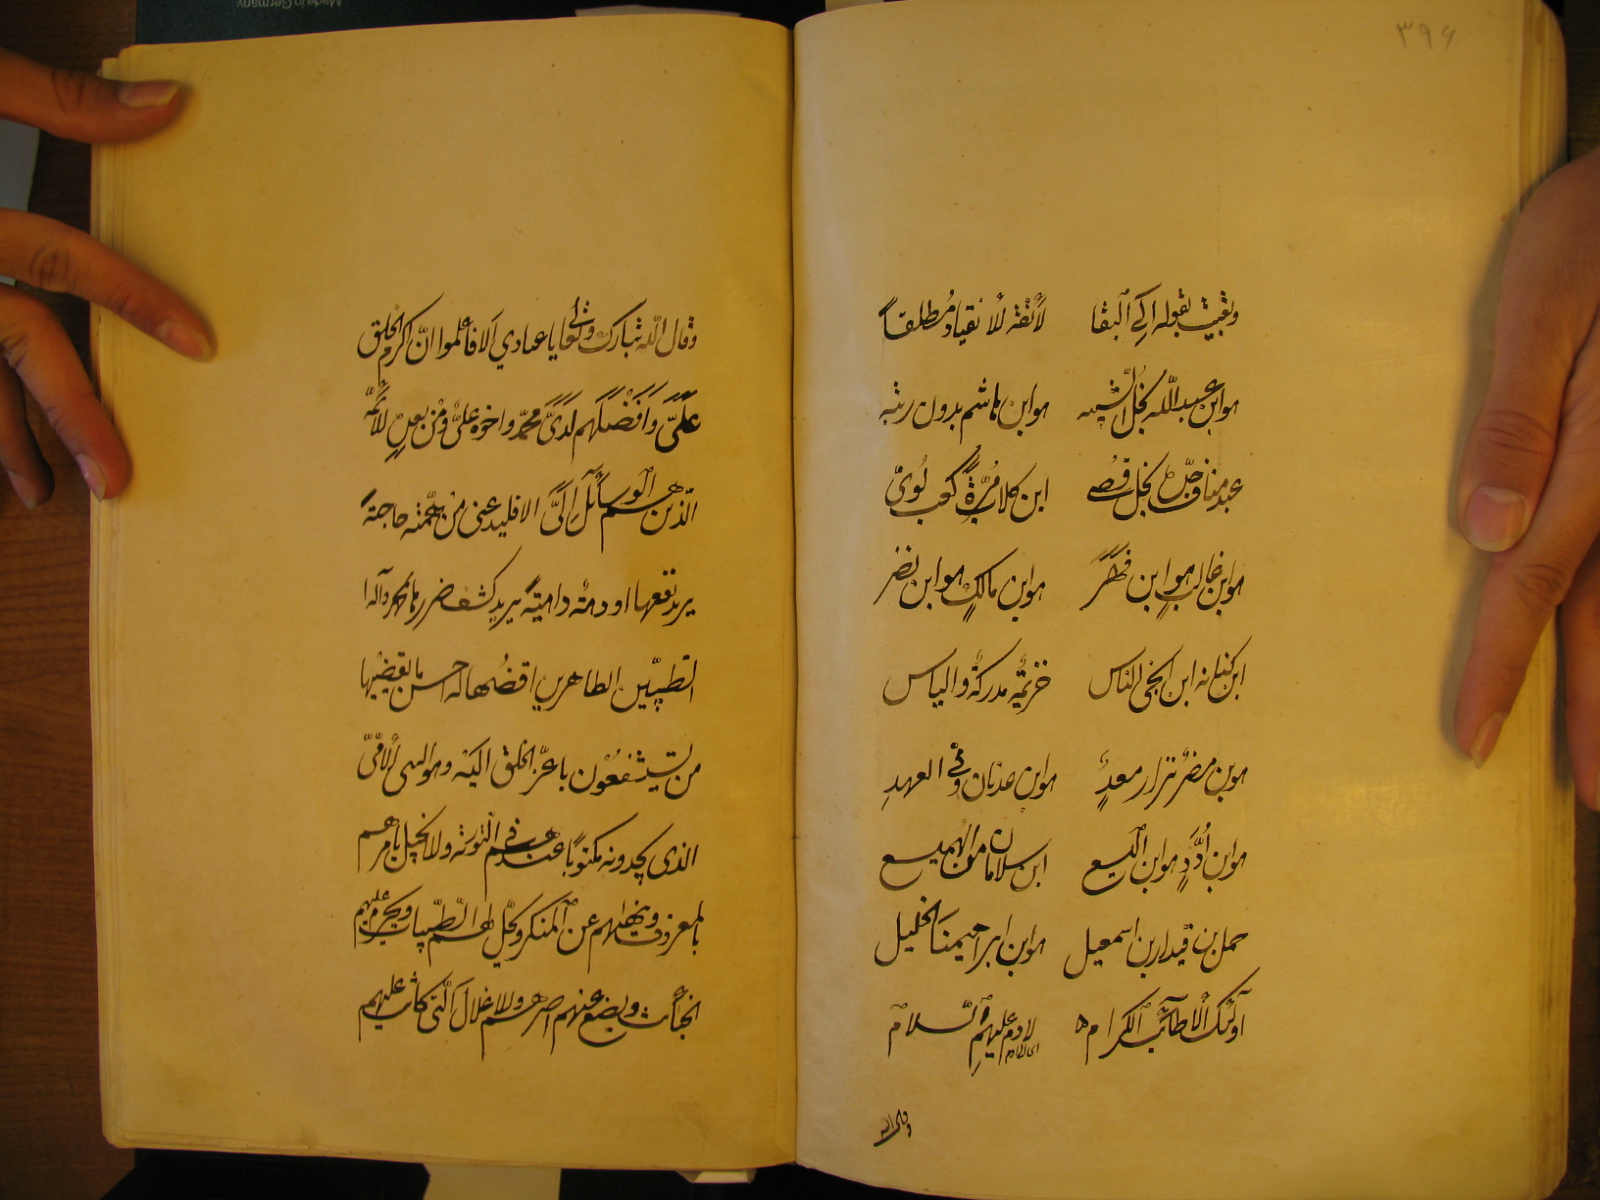 ٣٩۶
وبقيت بقوله الى البقا لأنفه للانقياد مطلقاً
هو ابن عبد الله نجل الشيبه هو ابن هاشم بدون ريبه
عبد مناف نجل قصي ابن كلاب مرة كعب لوي
هو ابن غالب هو ابن فهر هو ابن مالك هو ابن نضر
ابن كنانه ابن الناس خزيمة مدركة والياس
هو بن مضر نزار معد هو ابن عدنان وفي العهد
هو ابن أدد هو ابن اليسع ابن سلامان من الهميسع
حمل بن قيدار بن اسمعيل هو ابن ابراهيمنا الخليل
اولئك الاطائب الكرام لادم عليهم السلام
وقال الله
وقال الله تبارك وتعالى يا عبادي ألا فاعلموا انّ اكرم الخلق
عليّ وأفضلهم لديّ محمّد واخوه عليّ ومن بعده الأئمّة
الّذين هم الوسائل إليّ الا فليدعني من همّته حاجة
يريد نفعها او دهمته داهية يريد كشف ضررها بمحمد وآله
الطيّبين الطاهرين اقضها له احسن ما يقضيها
من تستشفعون باعزّ الخلق اليه وهو النبي الأمّي
الذي يجدونه مكتوباً عندهم في التورية والانجيل يأمرهم
بالمعروف وينهيهم عن المنكر ويحلّ لهم الطيّبات ويحرم عليهم
الخبائث ويضع عنهم اصرهم والاغلال الّتي كانت عليهم